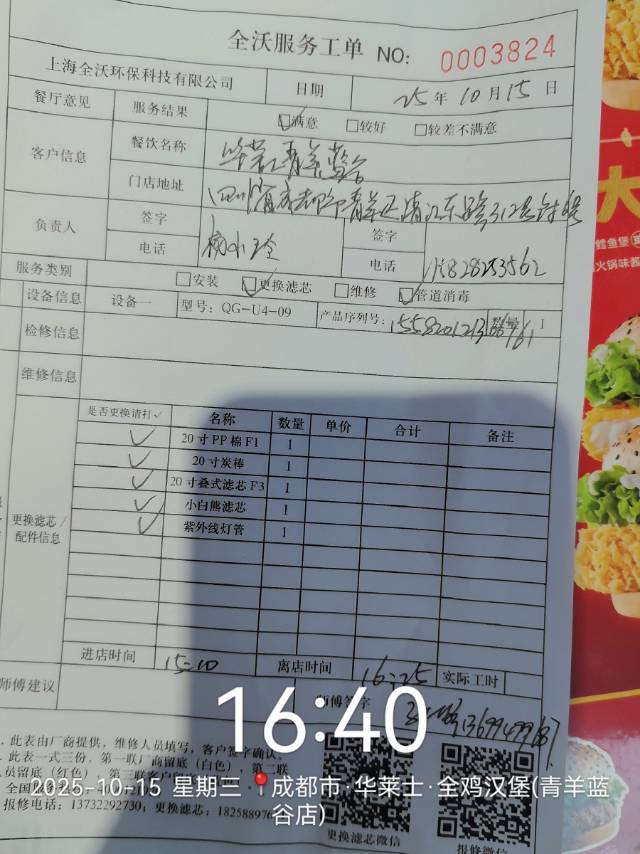 全沃服务工单 NO: 0003824
上海全沃环保科技有限公司 日期 25年10月15日
餐厅意见 服务结果 ☑满意 □较好 □较差不满意
客户信息 餐饮名称 华莱士青羊蓝谷
门店地址 四川省成都市青羊区清江东路312号附
负责人 签字 签字
电话 电话
服务类别 □安装 ☑更换滤芯 □维修 ☑管道消毒
设备信息 设备一 型号: QG-U4-09 产品序列号: 数量 1
检修信息
维修信息
是否更换请打✓ 名称 数量 单价 合计 备注
✓ 20寸PP棉F1 1
✓ 20寸炭棒 1
✓ 20寸叠式滤芯F3 1
✓ 小白熊滤芯 1
✓ 紫外线灯管 1
更换滤芯/
配件信息
进店时间 15:10 离店时间 16:25 实际工时
师傅建议 师傅签字
16:40
此表由厂商提供，维修人员填写，客户签字确认。
此表一式三份，第一联厂商留底（白色），第二联
员留底（红色），第三联客户
2025-10-15 星期三 成都市·华莱士·全鸡汉堡(青羊蓝
谷店)
报修电话: 13732292730; 更换滤芯: 18258897
更换滤芯微信 报修微信
大
鳕鱼堡
火锅味酱